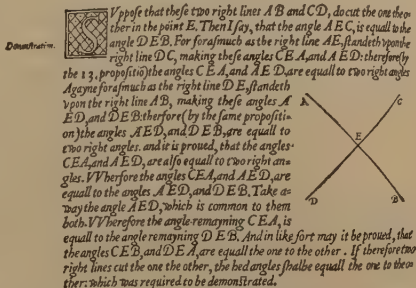 SVppose that these two right lines AB and CD, do cut the one the o-
ther in the point E. Then I say, that the angle AEC, is equall to the
Demonstration.
angle DEB. For forasmuch as the right line AE, standeth vpon the
right line DC, making these angles CEA, and AED: therefore (by
the 13. propositiō) the angles CEA, and AED, are equall to two right angles
Agayne forasmuch as the right line DE, standeth
vpon the right line AB, making these angles A
ED, and DEB: therfore (by the same propositi-
on) the angles AED, and DEB, are equall to
two right angles. and it is proued, that the angles
CEA, and AED, are also equall to two right an-
gles. VVherfore the angles CEA, and AED, are
equall to the angles AED, and DEB. Take a-
way the angle AED, which is common to them
both. VVherefore the angle remayning CEA, is
equall to the angle remayning DEB. And in like sort may it be proued, that
the angles CEB, and DEA, are equall the one to the other. If therefore two
right lines cut the one the other, the hed angles shalbe equall the one to the o-
ther: which was required to be demonstrated.
A C
E
D B